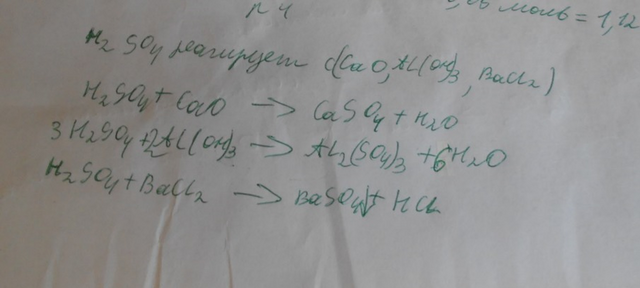 N 4
моль = 1,12
H₂SO₄ реагирует с(CaO, Al(OH)₃, BaCl₂)
H₂SO₄ + CaO → CaSO₄ + H₂O
3H₂SO₄ + 2Al(OH)₃ → Al₂(SO₄)₃ + 6H₂O
H₂SO₄ + BaCl₂ → BaSO₄↓ + HCl